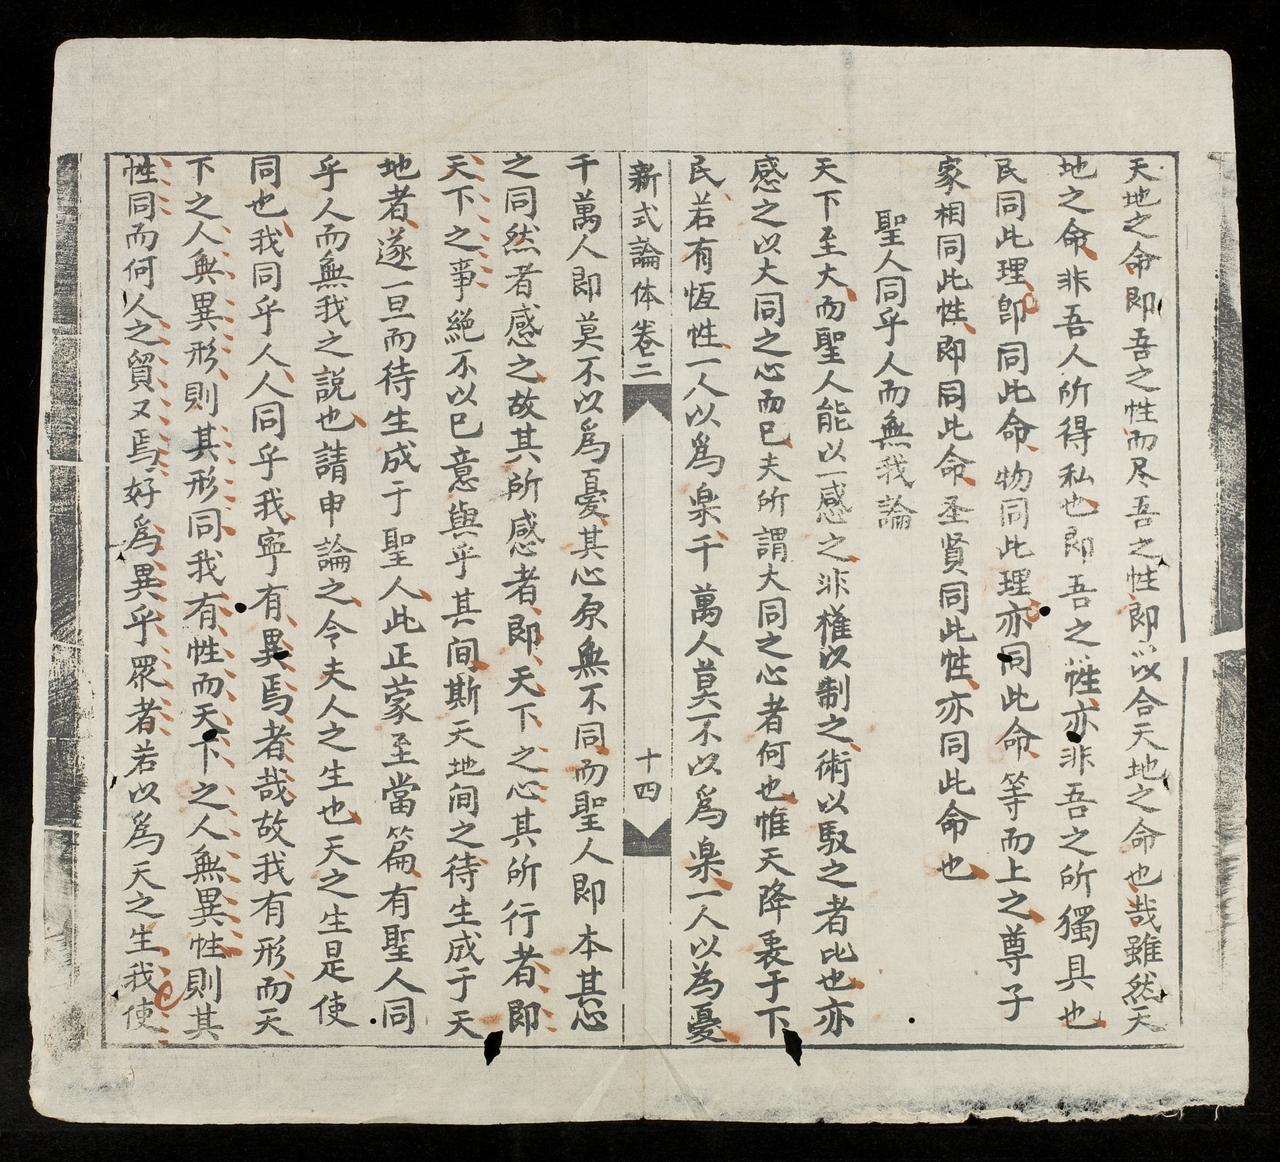 天地之命即吾之性而尽吾之性即以合天地之命也哉雖然天
地之命非吾人所得私也即吾之性亦非吾之所獨具也
民同此理即同此命物同此理亦同此命等而上之尊子
家相同此性即同此命圣贤同此性亦同此命也
聖人同乎人而無我論
天下至大而聖人能以一感之非權以制之術以馭之者比也亦
感之以大同之心而已夫所謂大同之心者何也惟天降衷于下
民若有恆性一人以為樂千萬人莫不以為樂一人以為憂
新式論体卷二
十四
千萬人即莫不以為憂其心原無不同而聖人即本其心
之同然者感之故其所感者即天下之心其所行者即
天下之事絕不以已意與乎其间斯天地间之待生成于天
地者遂一旦而待生成于聖人此正蒙至當篇有聖人同
乎人而無我之説也請申論之今夫人之生也天之生是使
同也我同乎人人同乎我寧有異焉者哉故我有形而天
下之人無異形則其形同我有性而天下之人無異性則其
性同而何人之貿又焉好為異乎眾者若以為天之生我使